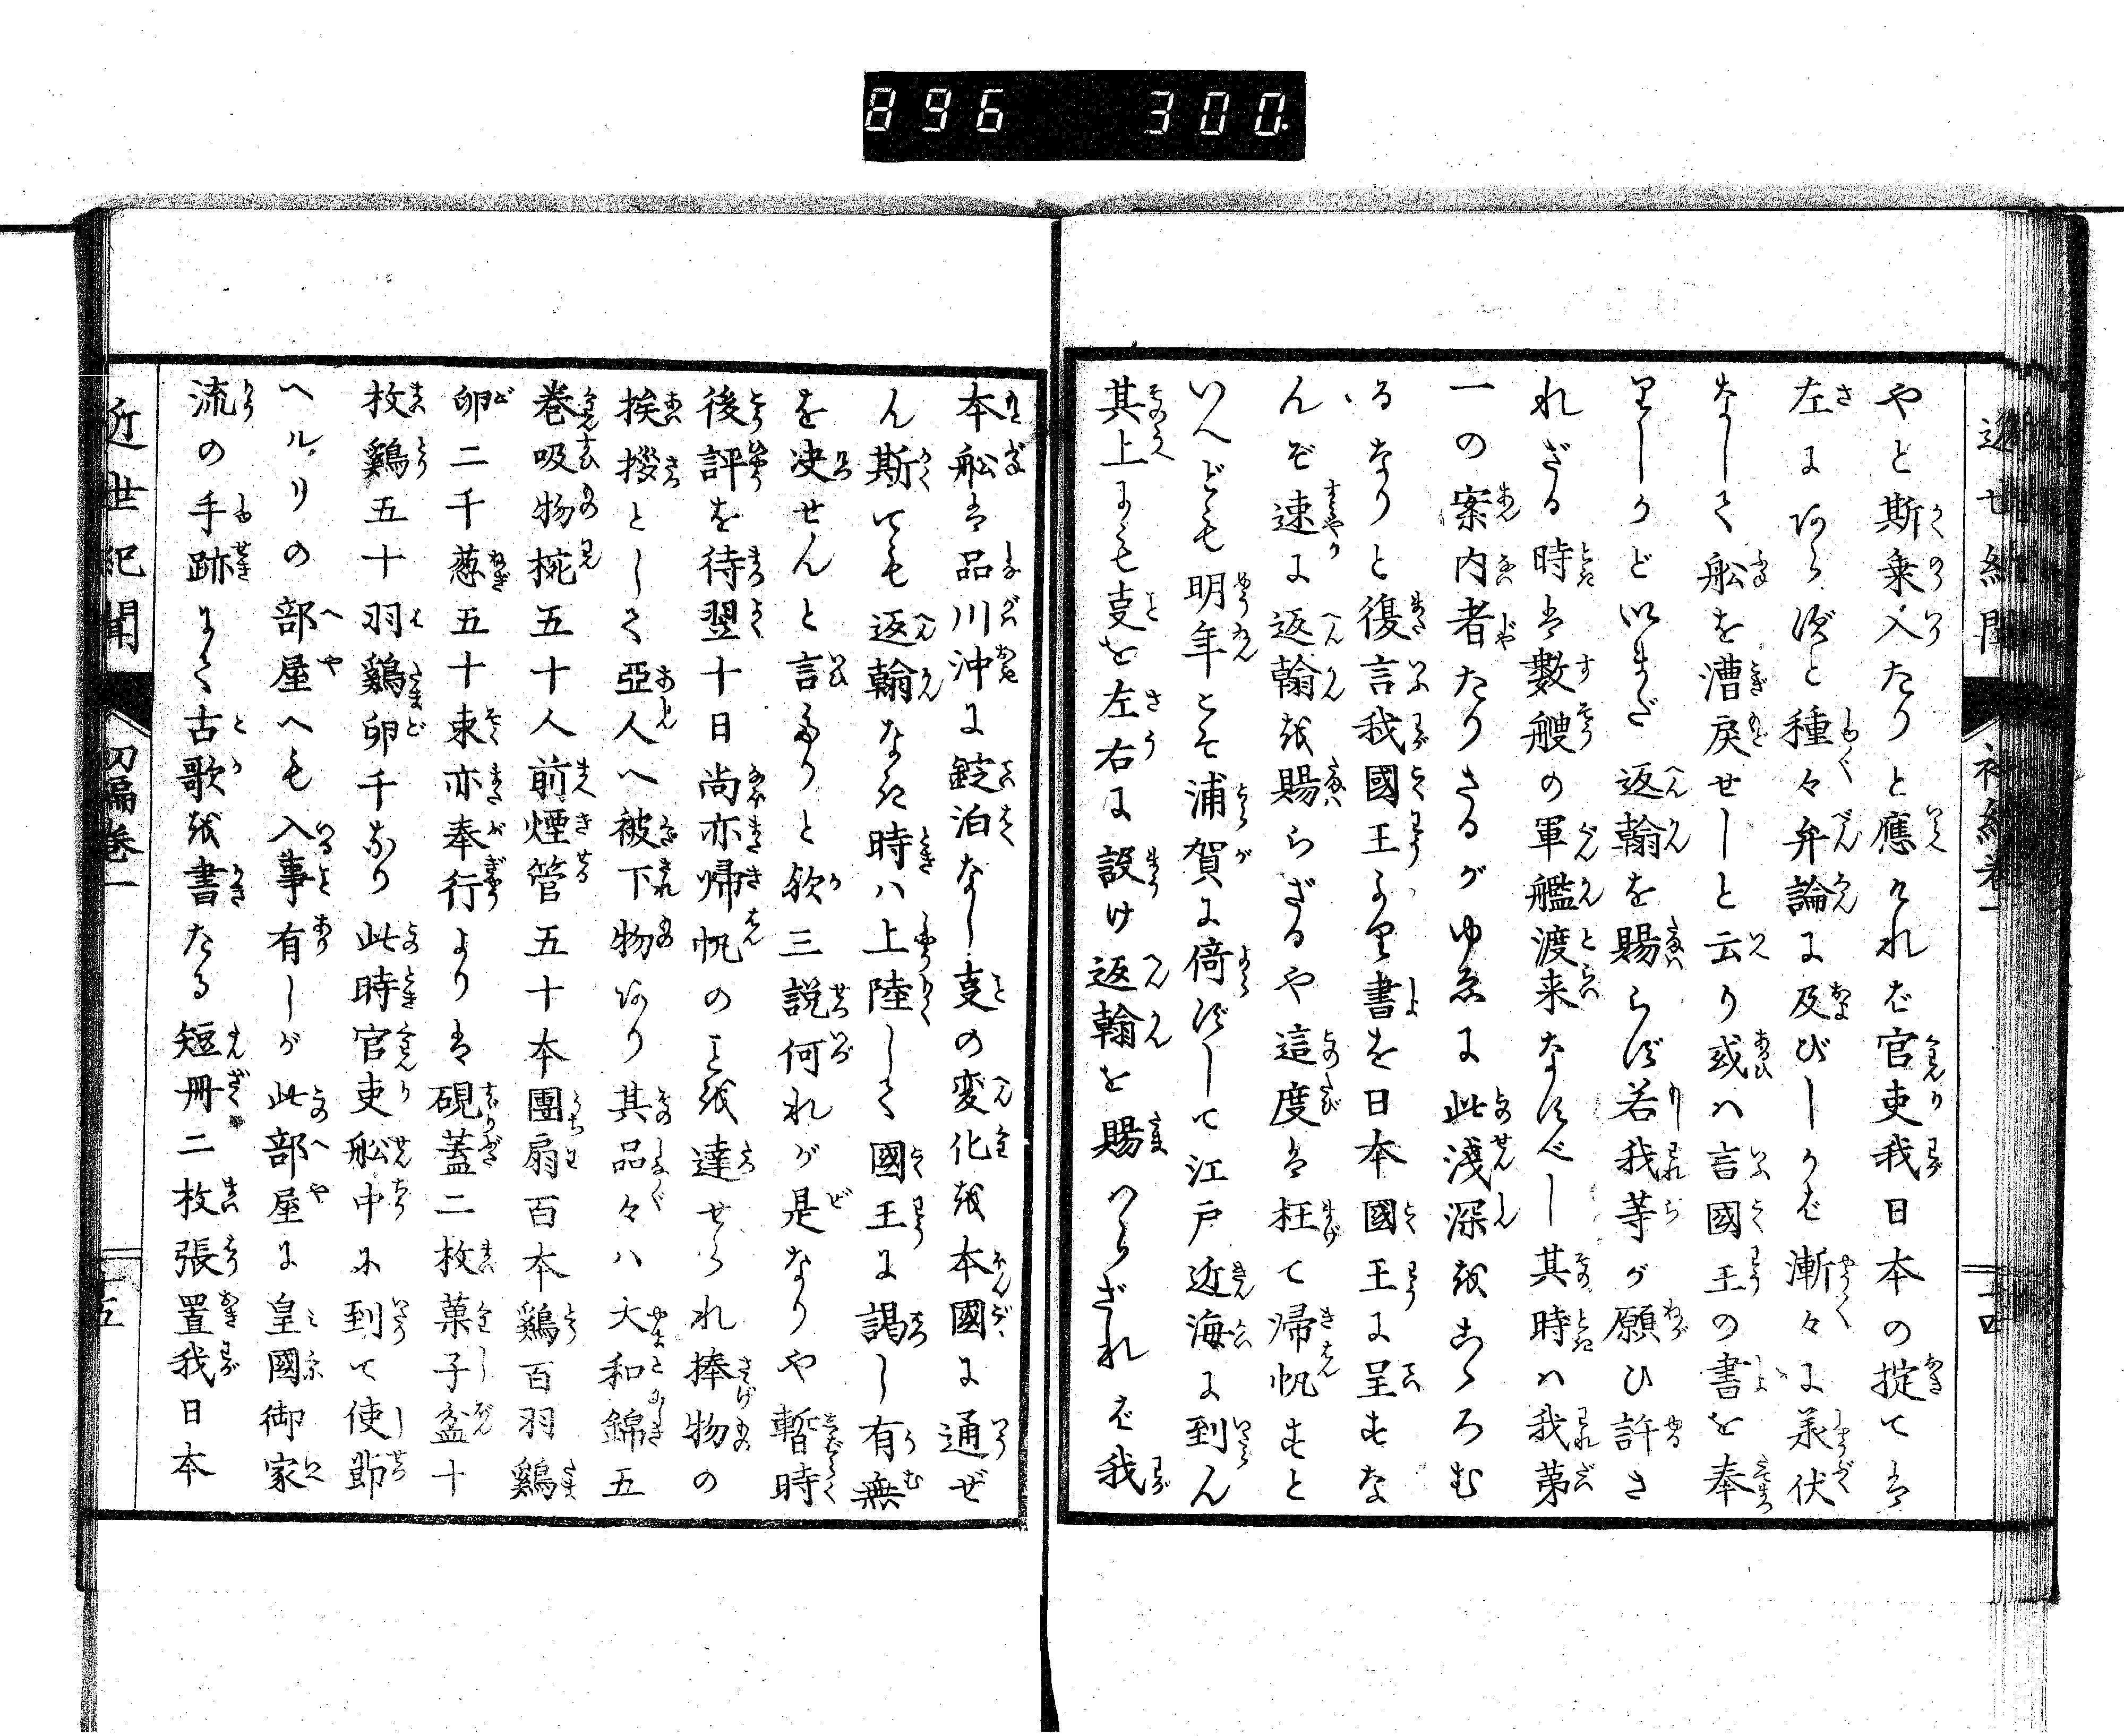 896 300.
近世紀聞 初編巻一 十四
やと斯乗入たりと應けれバ官吏我日本の掟てハ
左にあらずと種々弁論に及びしかバ漸々に羕伏
なして舩を漕戻せしと云り或ハ言國王の書を奉
りしかどいまだ返翰を賜らず若我等が願ひ許さ
れざる時ハ數艘の軍艦渡来なすべし其時ハ我第
一の案内者たりさるがゆゑに此淺深をこゝろむ
るなりと復言我國王より書を日本國王に呈すな
んぞ速に返翰を賜らざるや這度ハ枉て帰帆すと
いへども明年こそ浦賀に倚ずして江戸近海に到ん
其上にも叓を左右に設け返翰を賜ハらざれバ我
本舩ハ品川沖に錠泊なし叓の変化を本國に通ぜ
ん斯ても返翰なき時ハ上陸して國王に謁し有無
を决せんと言ありと欤三説何れが是なりや暫時
後評を待翌十日尚亦帰帆のよを達せられ捧物の
挨拶として亞人へ被下物あり其品々ハ大和錦五
巻吸物椀五十人前煙管五十本團扇百本鶏百羽鶏
卵二千葱五十束亦奉行よりハ硯蓋二枚菓子盆十
枚鶏五十羽鶏卵千あり此時官吏舩中に到て使節
ヘルリの部屋へも入事有しが此部屋に皇國御家
流の手跡にて古歌を書たる短冊二枚張置我日本
近世紀聞 初編巻一 十五